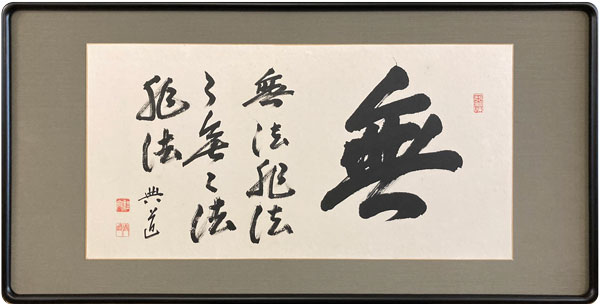 無
無法非法
々無々法
非法
典道